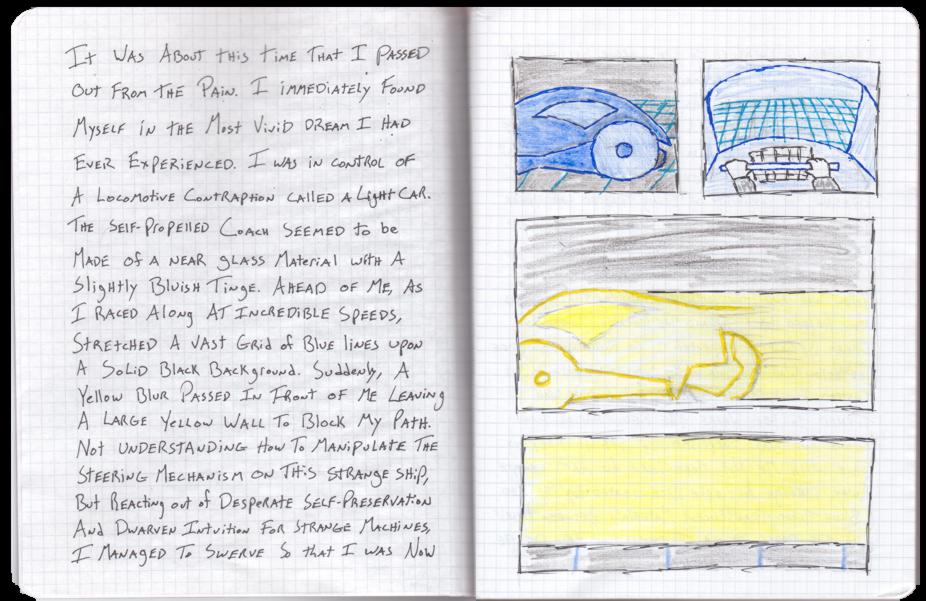 It was about this time that I passed
out from the pain. I immediately found
myself in the most vivid dream I had
ever experienced. I was in control of
a locomotive contraption called a Light Car.
The self-propelled coach seemed to be
made of a near glass material with a
slightly bluish tinge. Ahead of me, as
I raced along at incredible speeds,
stretched a vast grid of blue lines upon
a solid black background. Suddenly, a
yellow blur passed in front of me leaving
a large yellow wall to block my path.
Not understanding how to manipulate the
steering mechanism on this strange ship,
but reacting out of desperate self-preservation
and dwarven intuition for strange machines,
I managed to swerve so that I was now